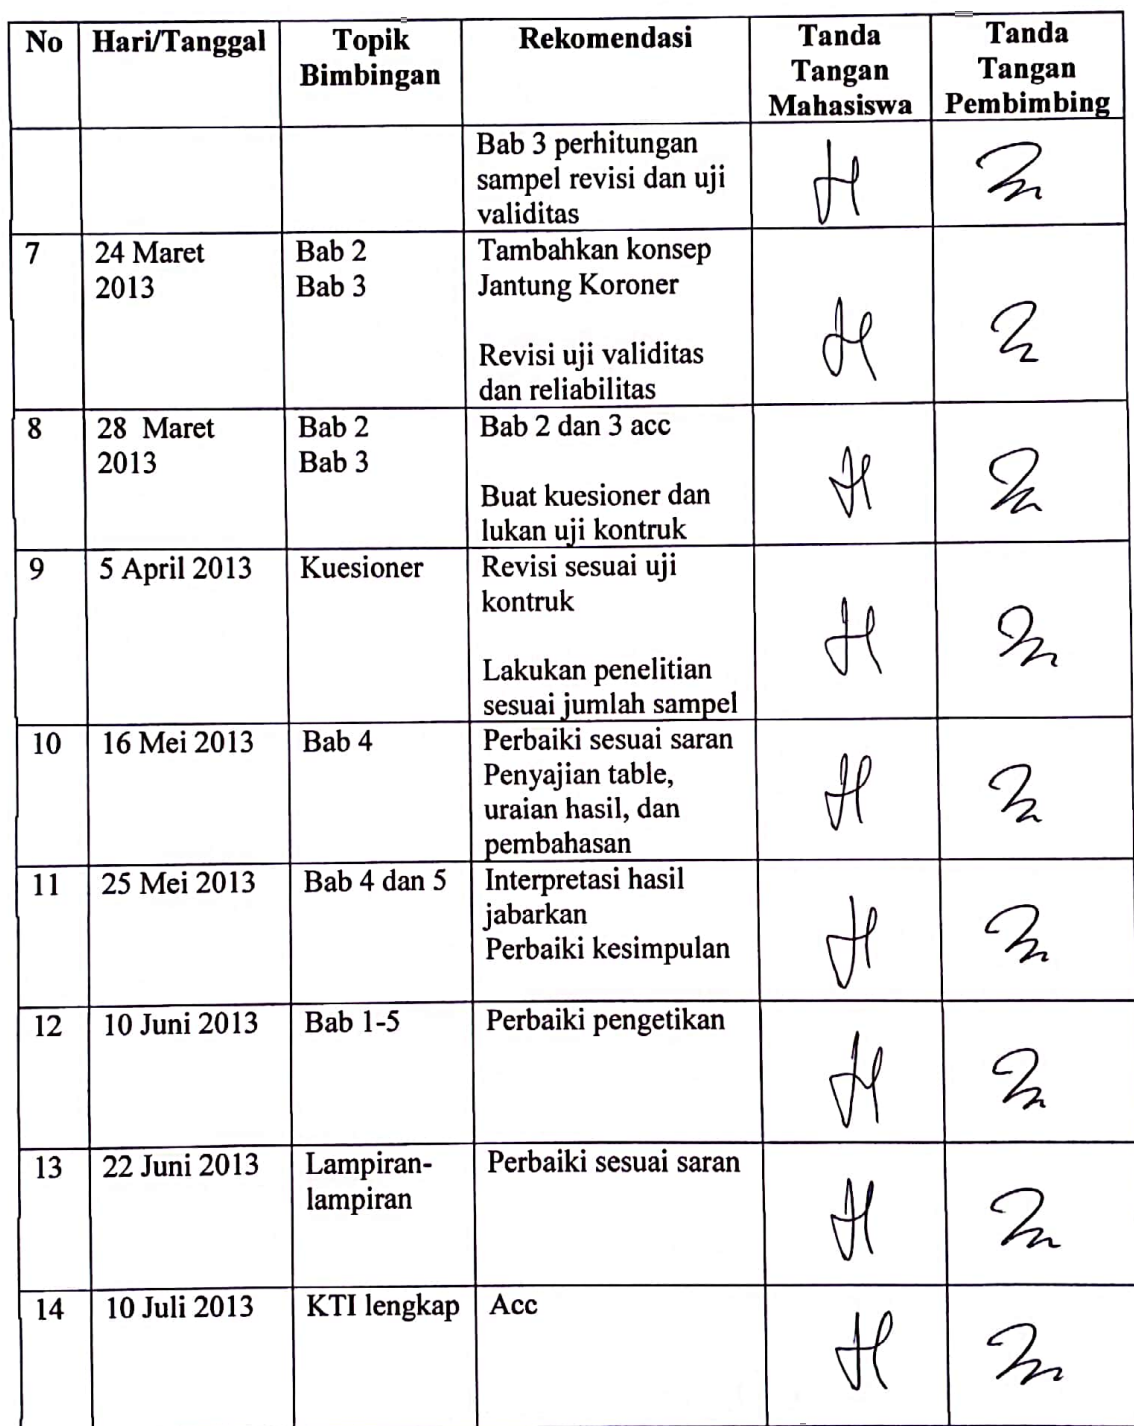 No Hari/Tanggal Topik Bimbingan Rekomendasi Tanda Tangan Mahasiswa Tanda Tangan Pembimbing
Bab 3 perhitungan
sampel revisi dan uji
validitas
7 24 Maret Bab 2 Tambahkan konsep
2013 Bab 3 Jantung Koroner
Revisi uji validitas
dan reliabilitas
8 28 Maret Bab 2 Bab 2 dan 3 acc
2013 Bab 3
Buat kuesioner dan
lukan uji kontruk
9 5 April 2013 Kuesioner Revisi sesuai uji
kontruk
Lakukan penelitian
sesuai jumlah sampel
10 16 Mei 2013 Bab 4 Perbaiki sesuai saran
Penyajian table,
uraian hasil, dan
pembahasan
11 25 Mei 2013 Bab 4 dan 5 Interpretasi hasil
jabarkan
Perbaiki kesimpulan
12 10 Juni 2013 Bab 1-5 Perbaiki pengetikan
13 22 Juni 2013 Lampiran- Perbaiki sesuai saran
lampiran
14 10 Juli 2013 KTI lengkap Acc